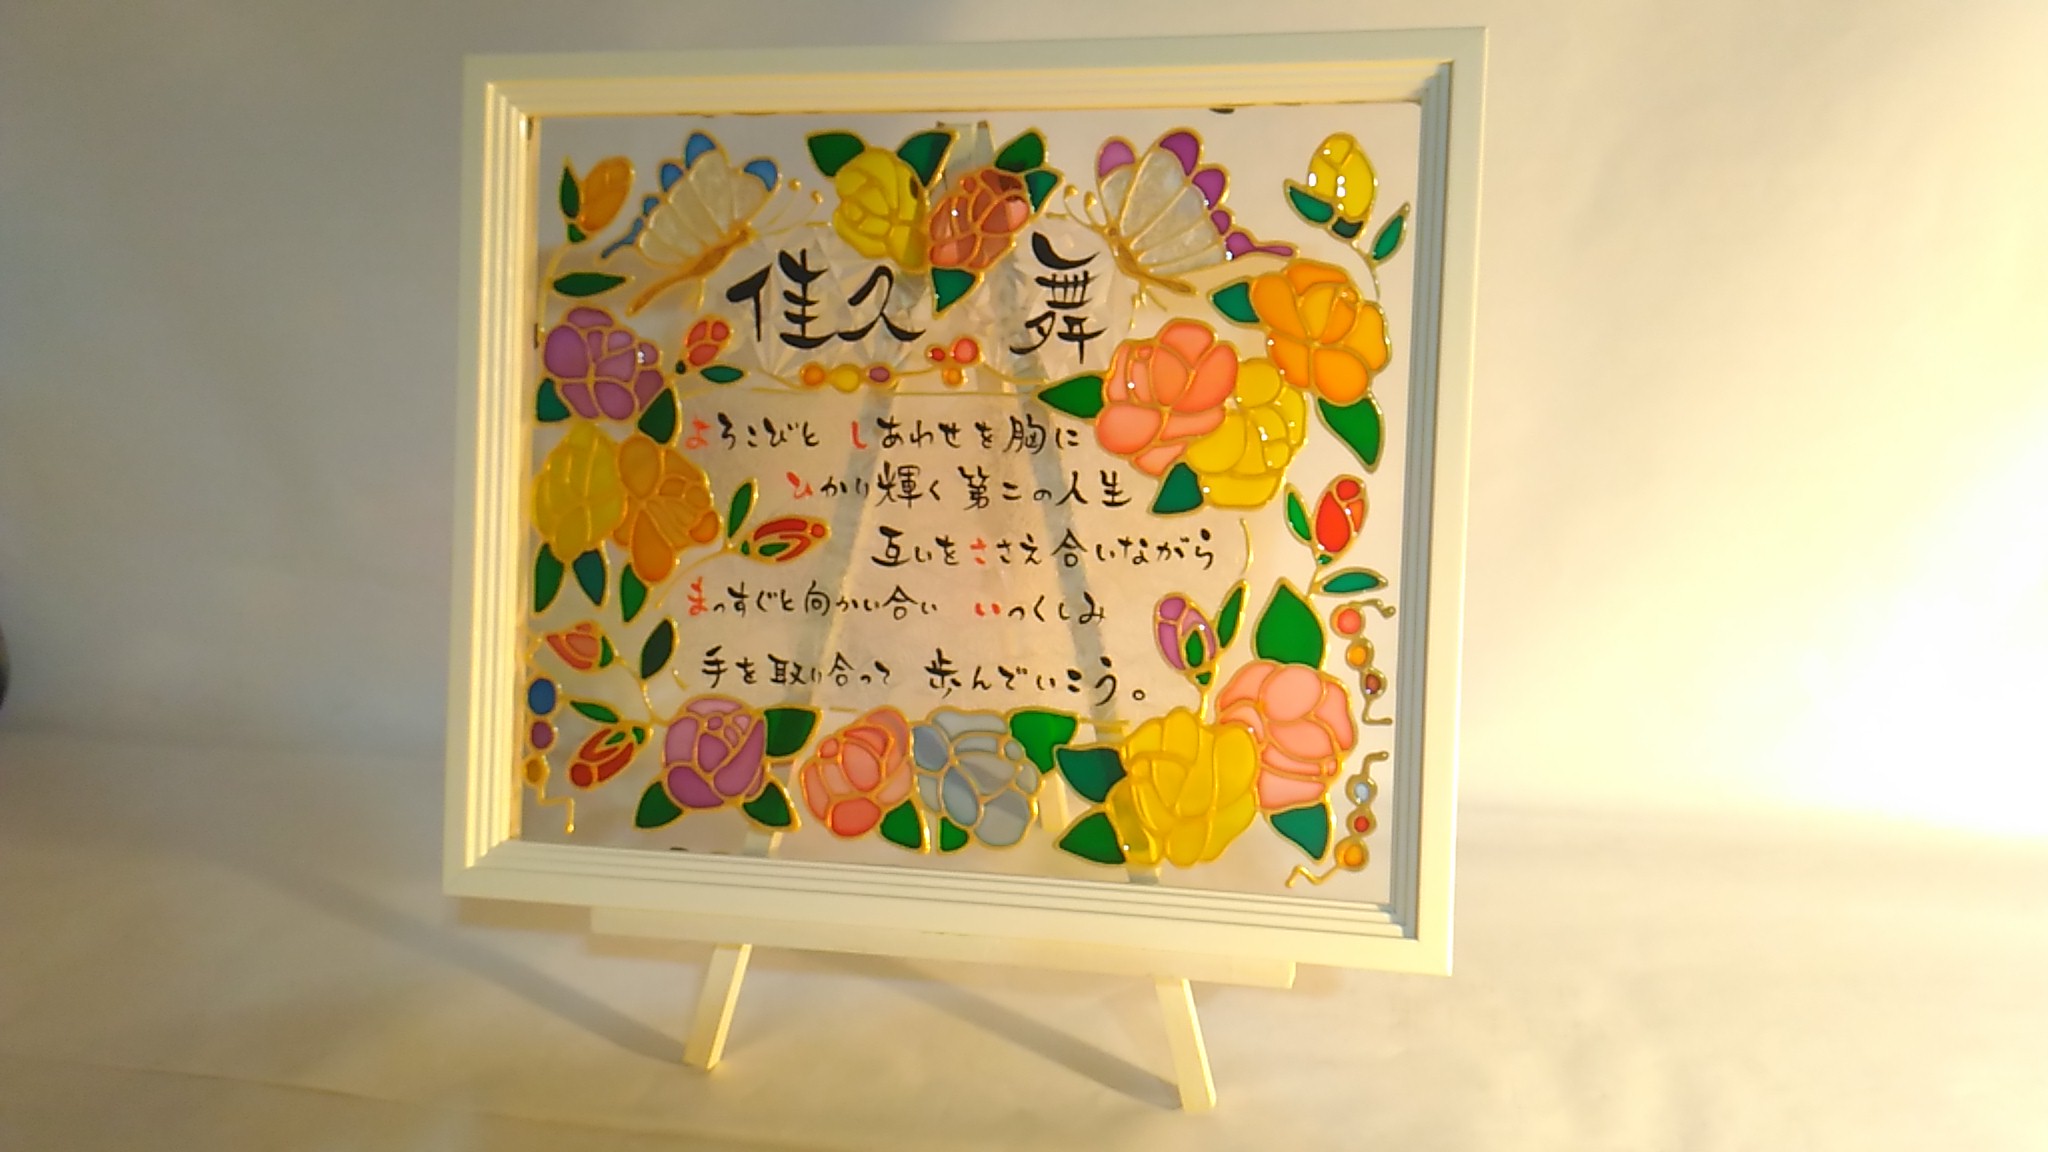 佳久 舞
よろこびと しあわせを胸に
ひかり輝く 第二の人生
互いをささえ合いながら
まっすぐと向かい合い いつくしみ
手を取り合って 歩んでいこう。